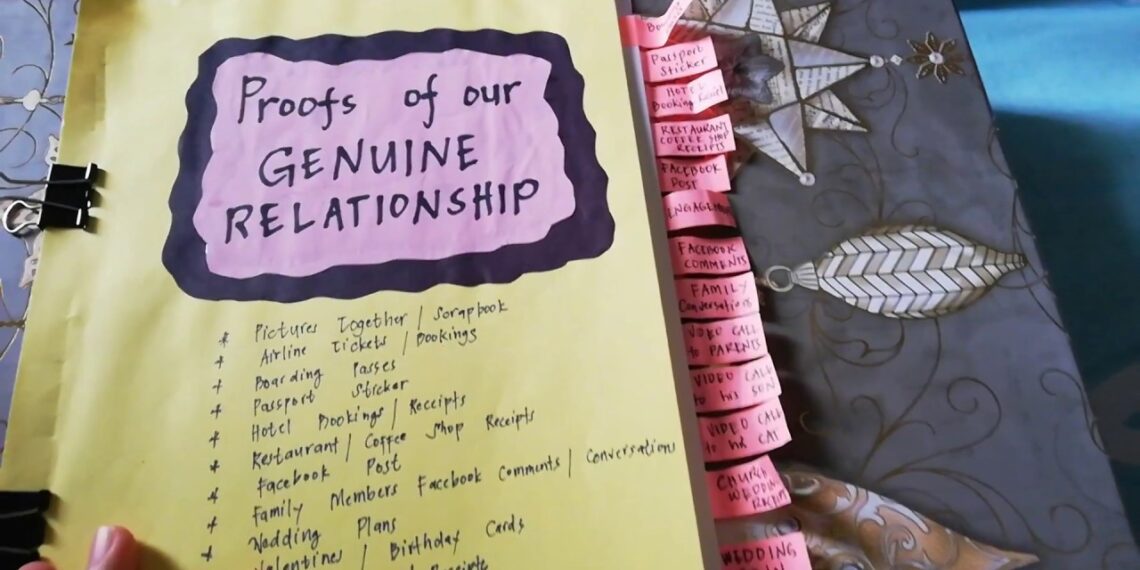 Proofs of our
GENUINE
RELATIONSHIP
* Pictures Together / Scrapbook
* Airline Tickets / Bookings
* Boarding Passes
* Passport Sticker
* Hotel Bookings / Receipts
* Restaurant / Coffee Shop Receipts
* Facebook Post
* Family Members Facebook Comments / Conversations
* Wedding Plans
Valentines / Birthday Cards
Passport
Sticker
HOTEL
Booking
RESTAURANT
COFFEE SHOP
RECEIPTS
FACEBOOK
POST
FACEBOOK
COMMENTS
FAMILY
Conversations
VIDEO CALL
to PARENTS
VIDEO CALL
to his SON
VIDEO CALL
to his CAT
CHURCH
WEDDING
WEDDING